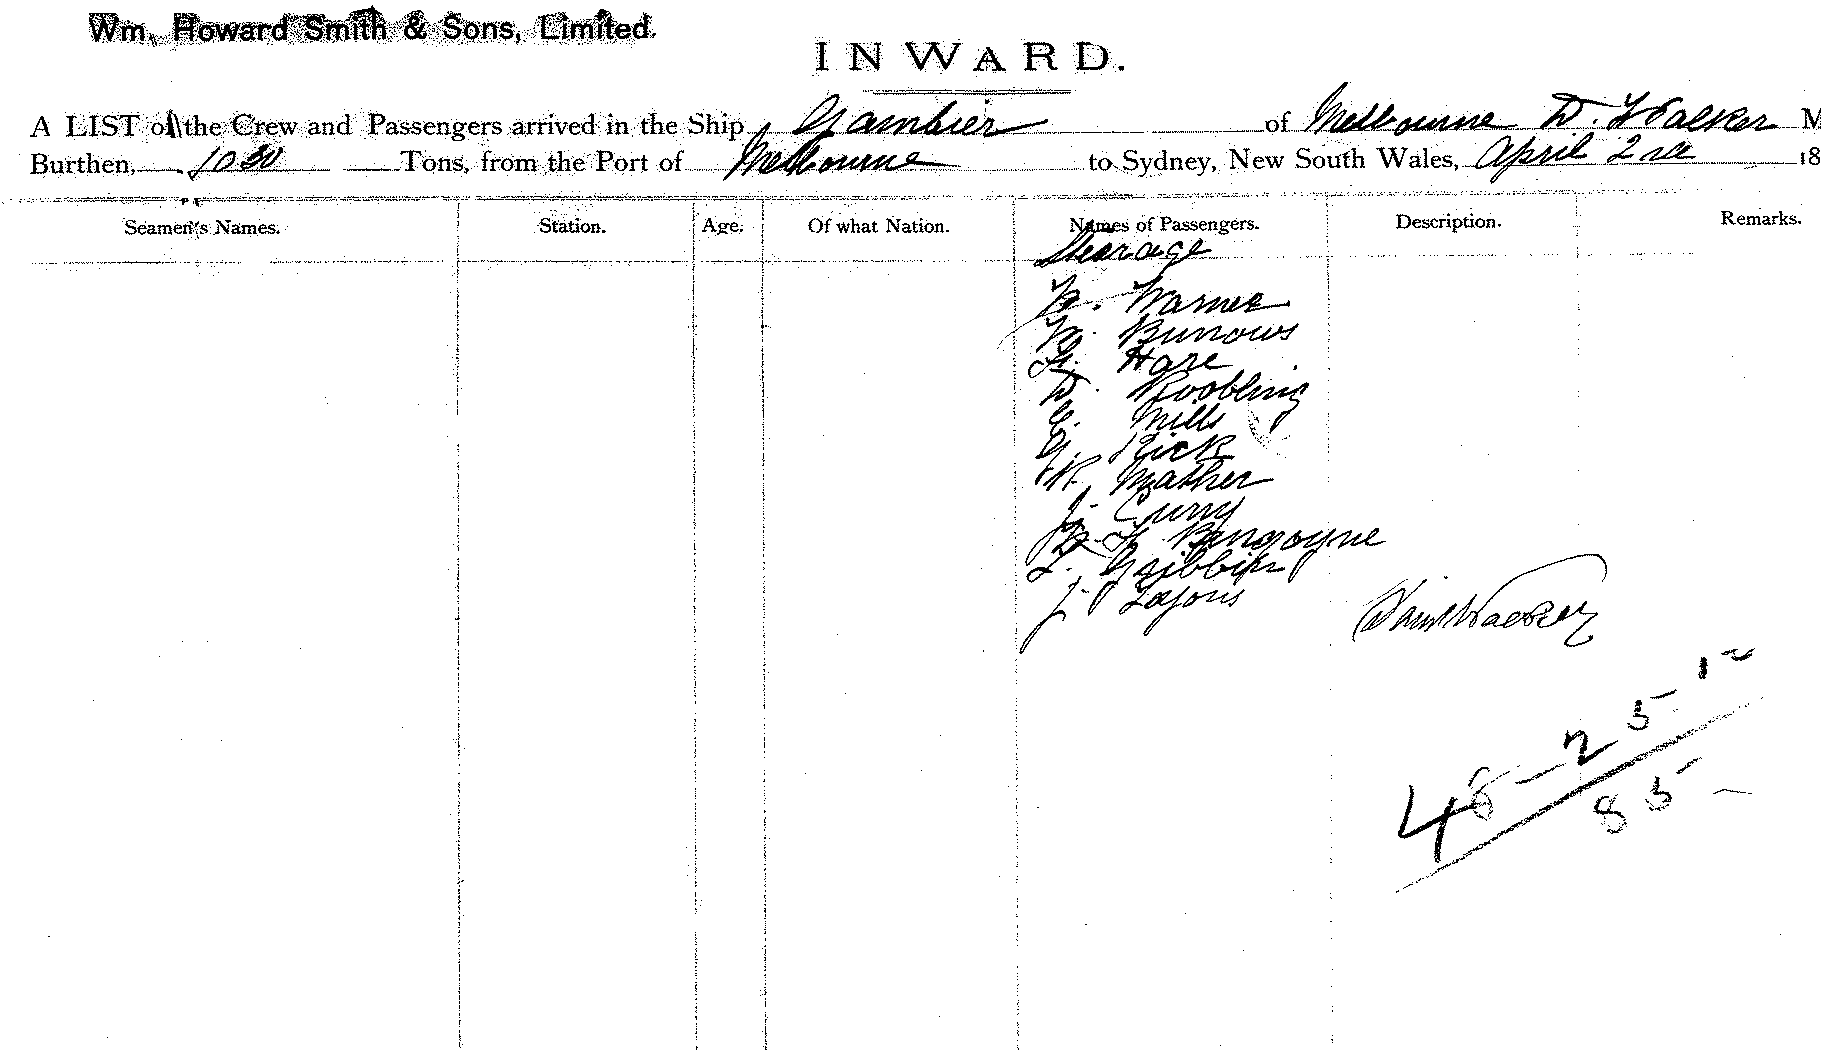 Wm. Howard Smith & Sons, Limited.
INWARD.
A LIST of the Crew and Passengers arrived in the Ship Gambier of Melbourne D. Walker M
Burthen, 1030 Tons, from the Port of Melbourne to Sydney, New South Wales, April 2nd 18
Seamen's Names. Station. Age. Of what Nation. Names of Passengers. Description. Remarks.
Steerage
W. Warner
W. Burrows
G. Hare
D. Roobling
G. Mills
Y. Rick
R. Mather
J. Curry
Burgoyne
L. Gribbin
J. Lyons
Walker
1
5
2
48
85